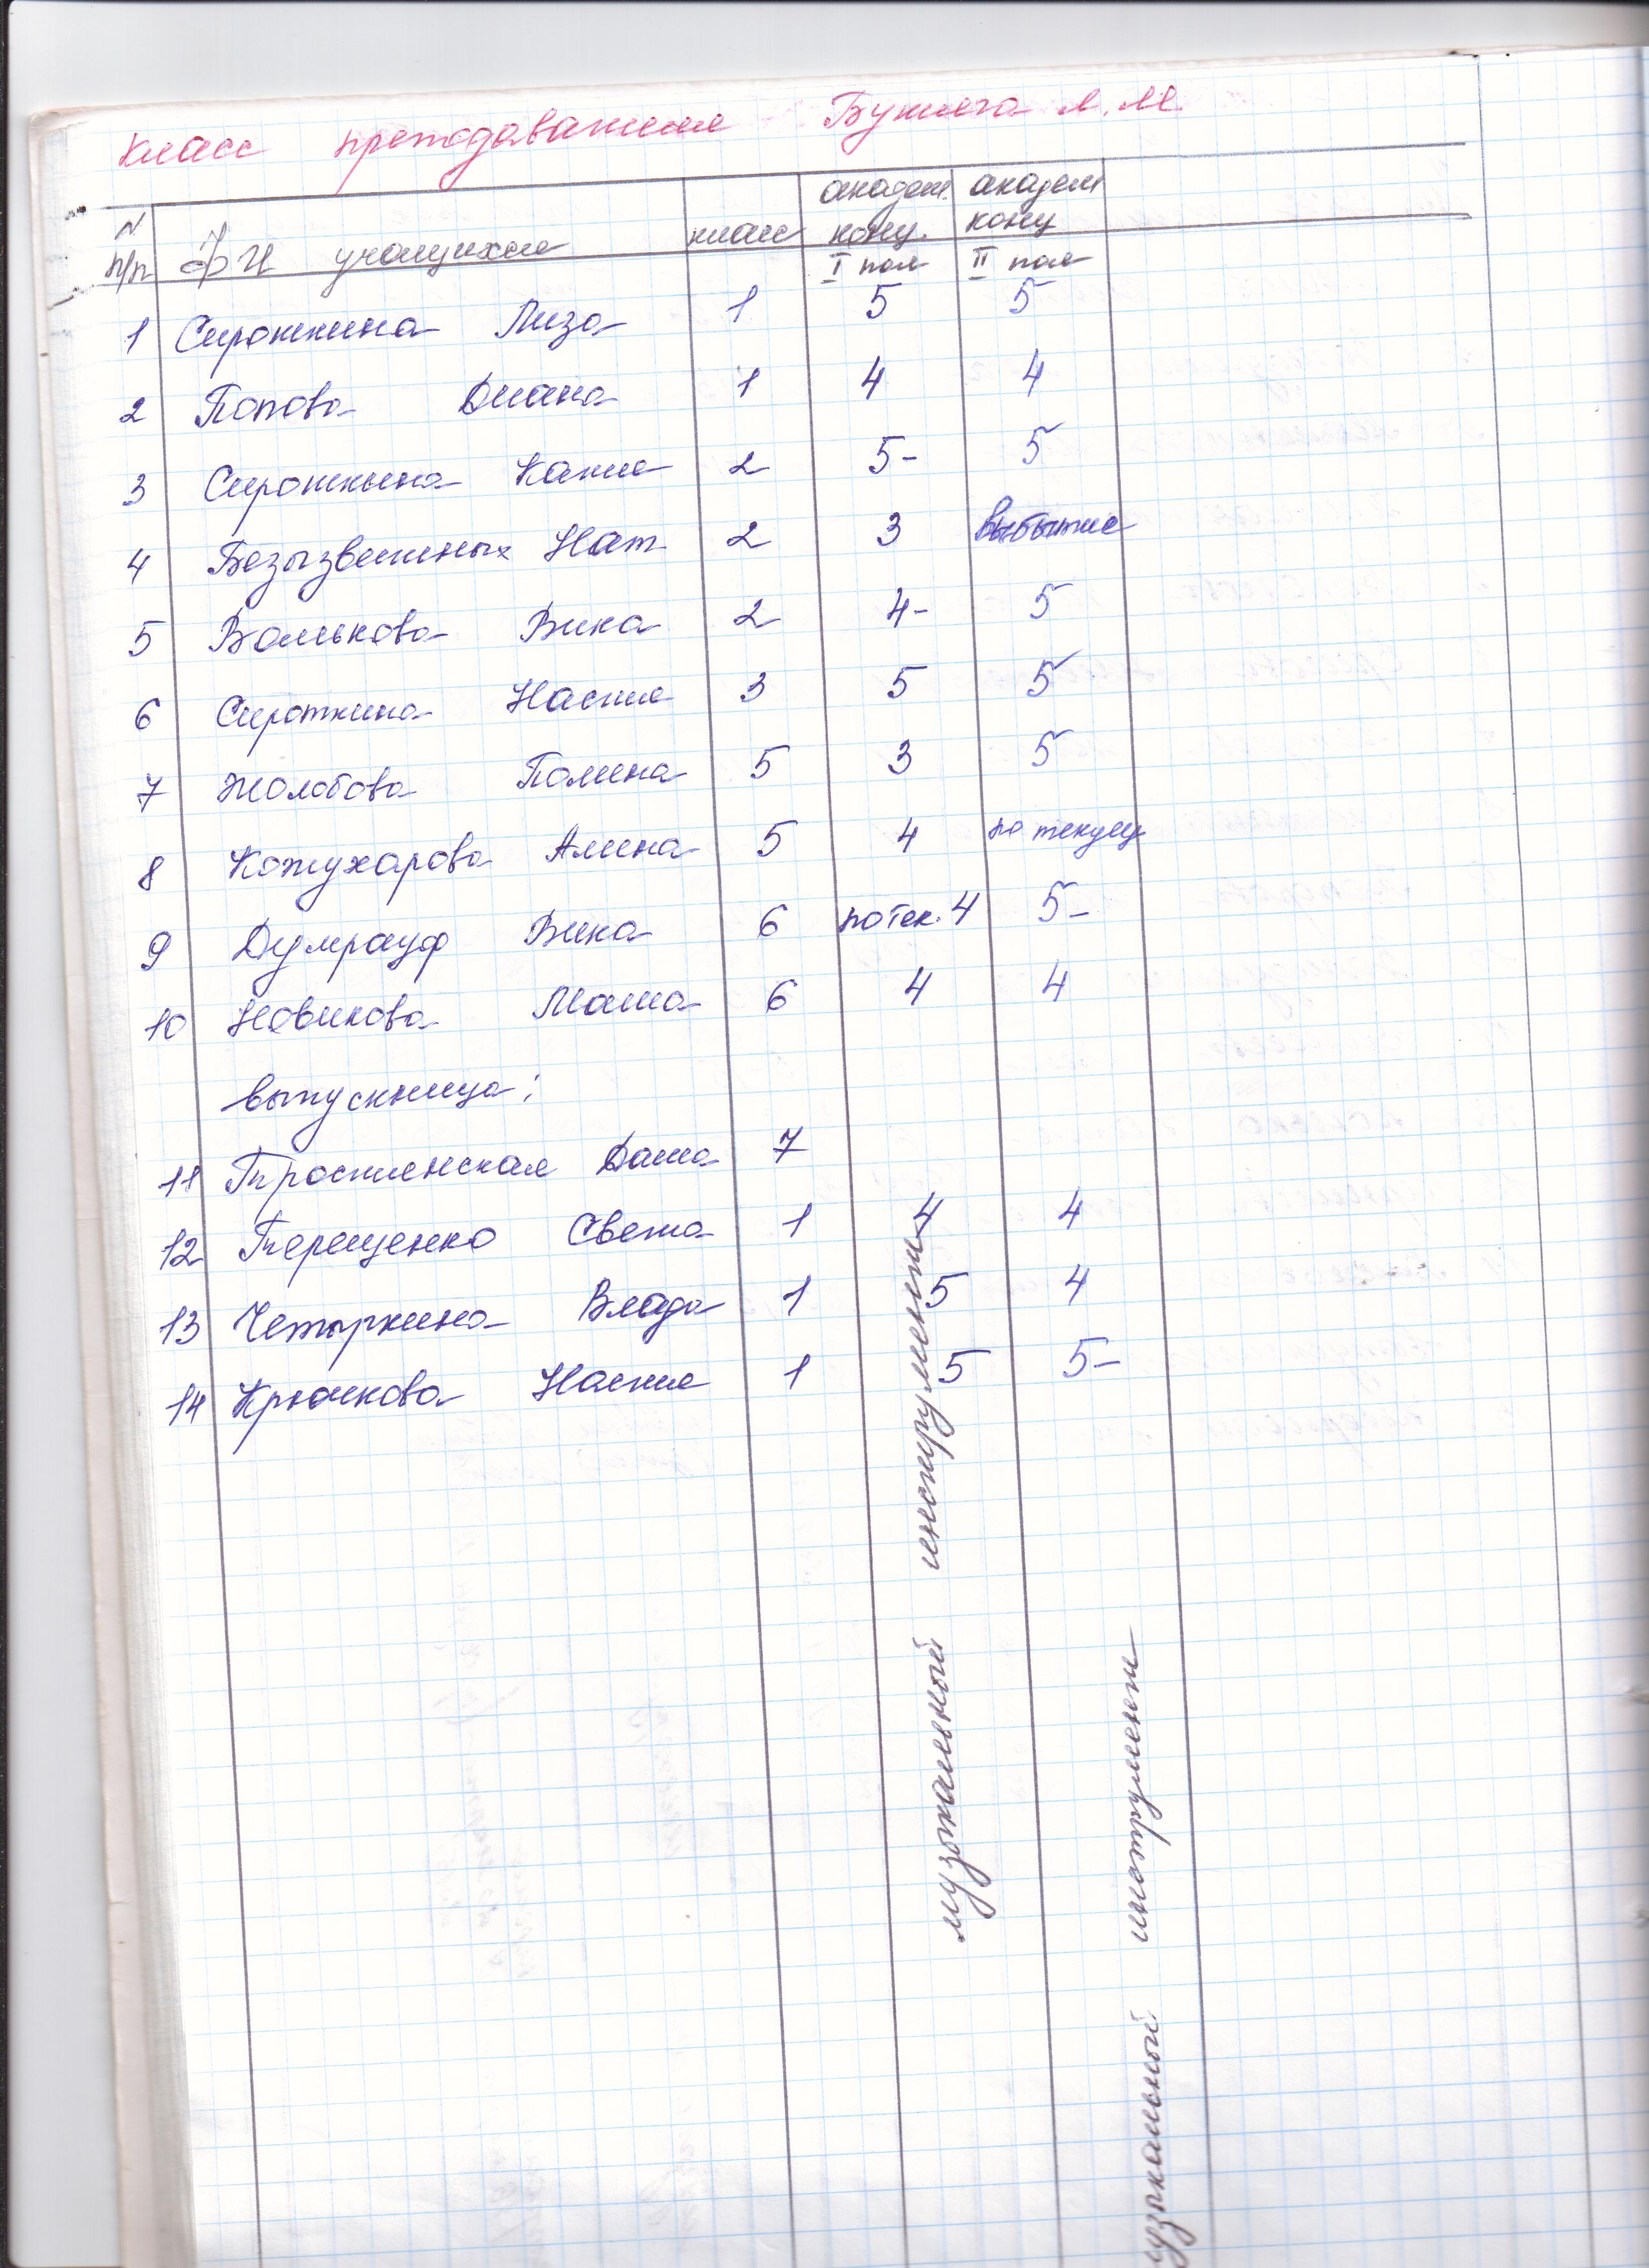 Класс преподавателя Бутяга Л.М.
N п/п ФИ учащихся класс академ. конц. I пол академ конц II пол
1 Сироткина Лиза 1 5 5
2 Попова Диана 1 4 4
3 Сироткина Катя 2 5- 5
4 Безызвестных Нат 2 3 выбытие
5 Волькова Вика 2 4- 5
6 Сироткина Настя 3 5 5
7 Жолобова Полина 5 3 5
8 Кожухарова Алина 5 4 по текущ
9 Думрауф Вика 6 по тек. 4 5-
10 Новикова Маша 6 4 4
выпускница:
11 Тростянская Даша 7
12 Терещенко Света 1 4 4
13 Четыркина Влада 1 5 4
14 Крючкова Настя 1 5 5-
музыкальный инструмент
музыкальный инструмент